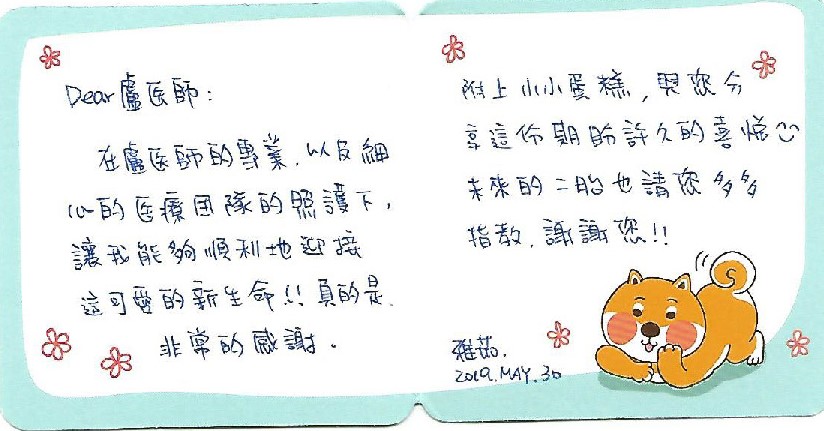 Dear 盧医師:
在盧医師的專業、以及細
心的医療団隊的照護下,
讓我能夠順利地迎接
這可愛的新生命!! 真的是
非常的感謝.
附上小小蛋糕,與您分
享這份期盼許久的喜悅
未來的二胎也請您多多
指教,謝謝您!!
雅茹.
2019.MAY.30